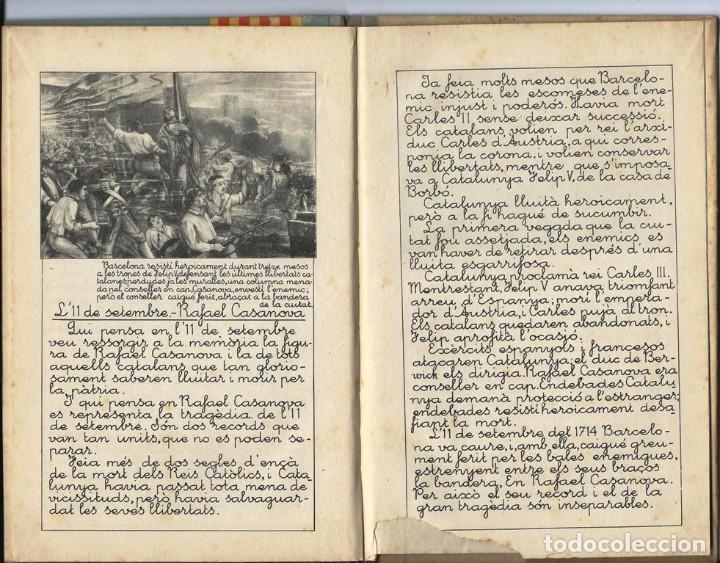 Barcelona resistí heroicament durant tretze mesos
a les tropes de Felip V, defensant les últimes llibertats ca-
talanes; perdudes ja les muralles, una columna mena-
da pel conseller en cap, Casanova, envestí l'enemic;
però el conseller caigué ferit, abraçat a la bandera
de la ciutat.
L'11 de setembre.-Rafael Casanova
Qui pensa en l'11 de setembre
veu ressorgir a la memòria la figu-
ra de Rafael Casanova i la de tots
aquells catalans que tan glorio-
sament saberen lluitar i morir per
la pàtria.
I qui pensa en Rafael Casanova
es representa la tragèdia de l'11
de setembre. Són dos records que
van tan units, que no es poden se-
parar.
Feia més de dos segles d'ençà
de la mort dels Reis Catòlics, i Cata-
lunya havia passat tota mena de
vicissituds, però havia salvaguar-
dat les seves llibertats.
Ja feia molts mesos que Barcelo-
na resistia les escomeses de l'ene-
mic, injust i poderós. Havia mort
Carles II sense deixar successió.
Els catalans volien per rei l'arxi-
duc Carles d'Austria, a qui corres-
ponia la corona, i volien conservar
les llibertats, mentre que s'imposa-
va a Catalunya Felip V, de la casa de
Borbó.
Catalunya lluità heroicament,
però a la fi hagué de sucumbir.
La primera vegada que la ciu-
tat fou assetjada, els enemics es
van haver de retirar després d'una
lluita esgarrifosa.
Catalunya proclamà rei Carles III.
Mentrestant, Felip V anava triomfant
arreu d'Espanya; morí l'empera-
dor d'Austria, i Carles pujà al tron.
Els catalans quedaren abandonats, i
Felip aprofità l'ocasió.
Exèrcits espanyols i francesos
atacaren Catalunya; el duc de Ber-
wick els dirigia. Rafael Casanova era
conseller en cap. Endebades Catalu-
nya demanà protecció a l'estranger;
endebades resistí heroicament desa-
fiant la mort.
L'11 de setembre del 1714 Barcelo-
na va caure, i, amb ella, caigué greu-
ment ferit per les bales enemigues,
estrenyent entre els seus braços
la bandera, En Rafael Casanova.
Per això el seu record i el de la
gran tragèdia són inseparables.
todocoleccion.net